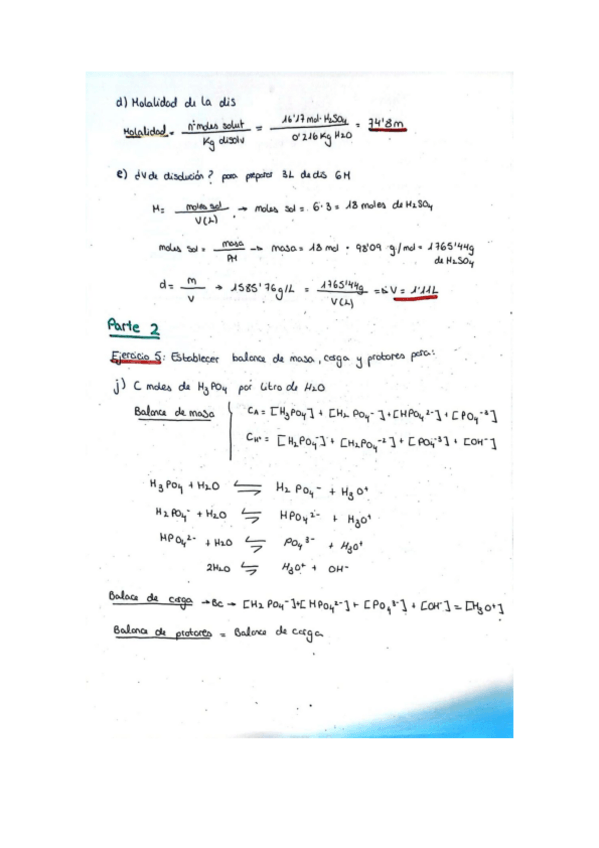 d) Molalidad de la dis
Molalidad = nº moles solut / Kg disolv = 16'17 mol H₂SO₄ / 0'216 Kg H₂O = 74'8 m
e) ¿V de disolución? para preparar 3L de dis 6M
M = moles sol / V(L) → moles sol = 6·3 = 18 moles de H₂SO₄
moles sol = masa / PM → masa = 18 mol · 98'09 g/mol = 1765'44g de H₂SO₄
d = m / V → 1585'76 g/L = 1765'44g / V(L) => V = 1'11L
Parte 2
Ejercicio 5: Establecer balance de masa, carga y protones para:
j) C moles de H₃PO₄ por litro de H₂O
Balance de masa
C_A = [H₃PO₄] + [H₂PO₄⁻] + [HPO₄²⁻] + [PO₄⁻³]
C_H⁺ = [H₂PO₄⁻] + [H₂PO₄⁻²] + [PO₄⁻³] + [OH⁻]
H₃PO₄ + H₂O ⇌ H₂PO₄⁻ + H₃O⁺
H₂PO₄⁻ + H₂O ⇌ HPO₄²⁻ + H₃O⁺
HPO₄²⁻ + H₂O ⇌ PO₄³⁻ + H₃O⁺
2H₂O ⇌ H₃O⁺ + OH⁻
Balace de carga → BC → [H₂PO₄⁻]+[HPO₄²⁻] + [PO₄³⁻] + [OH⁻] = [H₃O⁺]
Balance de protones = Balance de carga